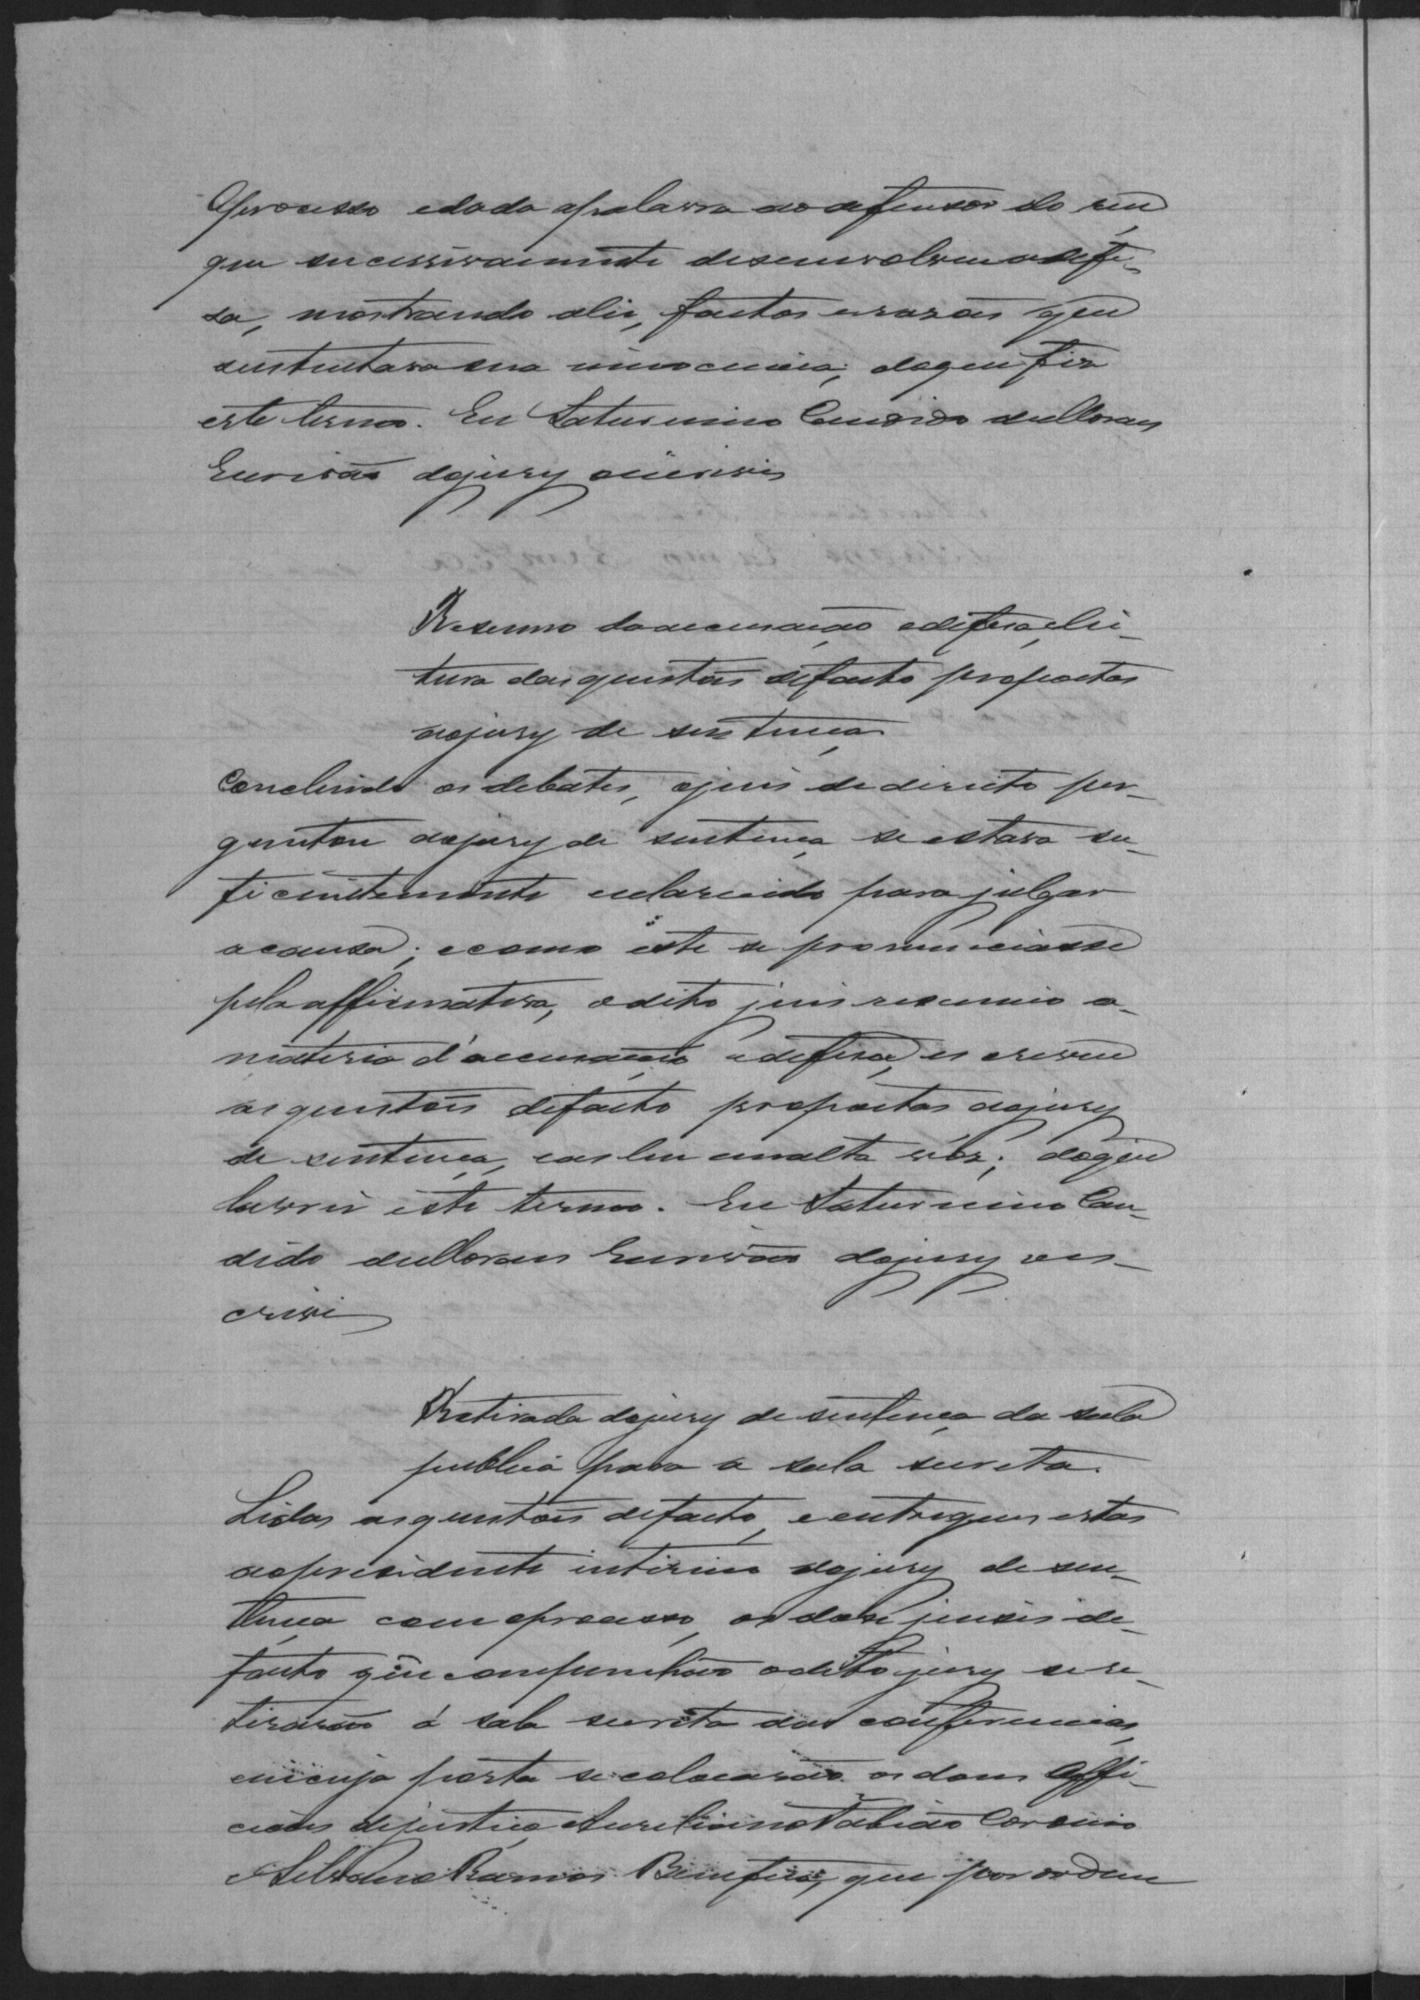 o processo e dada a palavra ao defensor do reu
que successivamente desenvolveu a defe-
sa, mostrando a lei, factos e rasoes que
sustentava sua innocencia; do que fis
este termo. Eu Saturnino Candido de Moraes
Escrivão do jury o escrevi
Resumo da accusação e defesa, e lei-
tura das questões de facto propostas
ao jury de sentença
Concluido os debates, o juis de direito per-
guntou ao jury de sentença se estava su-
ficientemente esclarecido para julgar
a causa; e como este se pronunciasse
pela affirmativa, o dito juis resumio a
materia d'accusação e defesa, escreveu
as questões de facto propostas ao jury
de sentença, e as leu em alta vós; do que
lavrei este termo. Eu Saturnino Can-
dido de Moraes Escrivão do jury o es-
crevi
Retirada do jury de sentença da sala
publica para a sala secreta.
Lidas as questões de facto, e entregues estas
ao presidente interino do jury de sen-
tença com o processo, os dose juises de
facto que compunhão o dito jury se re-
tirarão á sala secreta das conferencias,
em cuja porta se colocarão os dous Offi-
ciaes de justiça Aureliano Fabião
e Silvano Ramos Bemfica, que por ordem